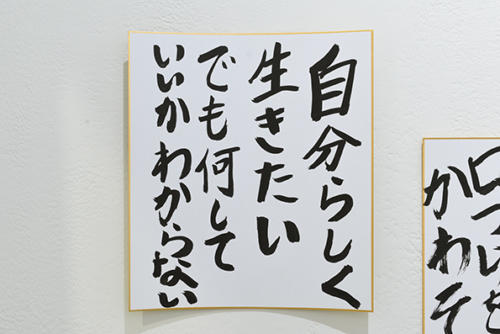 自分らしく
生きたい
でも何して
いいかわからない
かわ